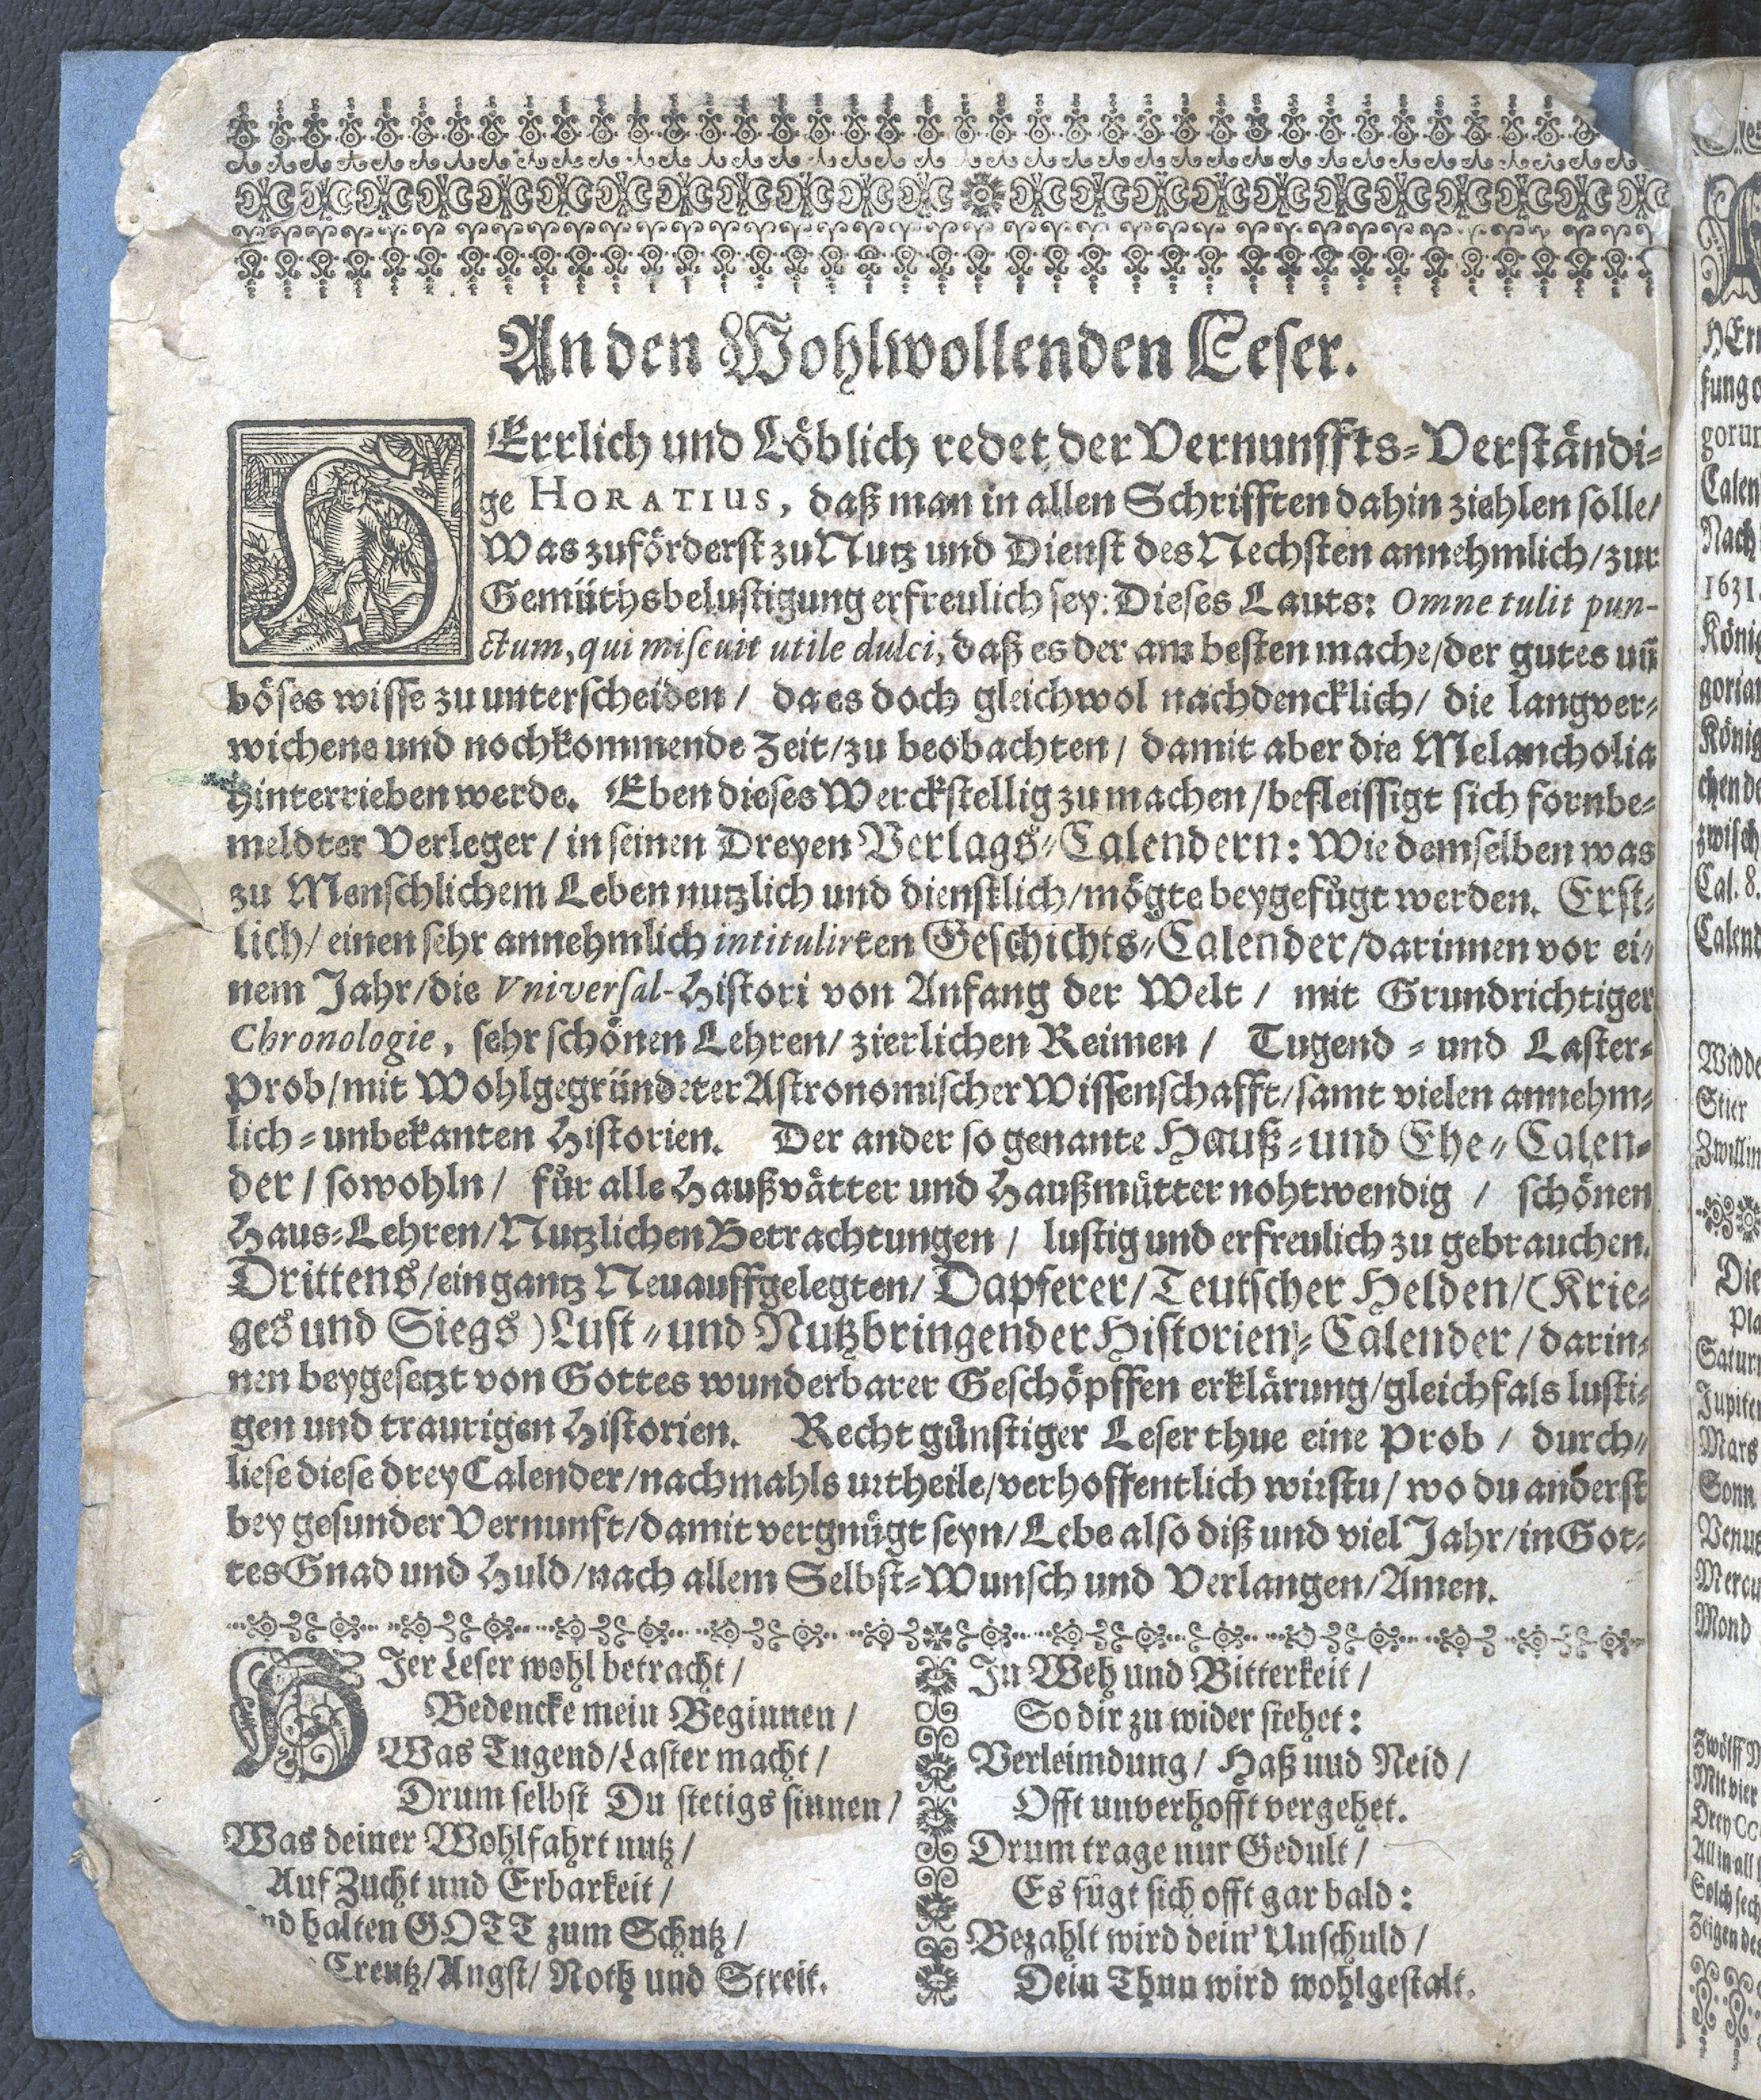 An den Wohlwollenden Leser.
HErrlich und Löblich redet der Vernunffts-Verständi-
ge HORATIUS, daß man in allen Schrifften dahin ziehlen solle/
Was zuförderst zu Nutz und Dienst des Nechsten annehmlich/zur
Gemüthsbelustigung erfreulich sey: Dieses Lauts: Omne tulit pun-
ctum, qui miscuit utile dulci, daß es der am besten mache/der gutes uñ
böses wisse zu unterscheiden / da es doch gleichwol nachdencklich/ die langver-
wichene und nochkommende Zeit/zu beobachten / damit aber die Melancholia
hinterrieben werde. Eben dieses Werckstellig zu machen/befleissigt sich fornbe-
meldter Verleger / in seinen Dreyen Verlags-Calendern: Wie demselben was
zu Menschlichem Leben nutzlich und dienstlich/mögte beygefügt werden. Erst-
lich/ einen sehr annehmlich intitulirten Geschichts-Calender/darinnen vor ei-
nem Jahr/die Vniversal-Histori von Anfang der Welt / mit Grundrichtiger
Chronologie, sehr schönen Lehren/ zierlichen Reimen / Tugend - und Laster-
Prob/mit Wohlgegründeter Astronomischer Wissenschafft/samt vielen annehm-
lich-unbekanten Historien. Der ander so genante Hauß-und Ehe-Calen-
der / sowohln / für alle Haußvätter und Haußmütter nohtwendig / schönen
Haus-Lehren/Nutzlichen Betrachtungen / lustig und erfreulich zu gebrauchen.
Drittens/ein gantz Neuauffgelegten/ Dapferer/Teutscher Helden/(Krie-
ges und Siegs) Lust-und Nutzbringender Historien-Calender / darin-
nen beygesetzt von Gottes wunderbarer Geschöpffen erklärung/gleichfals lusti-
gen und traurigen Historien. Recht günstiger Leser thue eine Prob / durch-
liese diese drey Calender/nachmahls urtheile/verhoffentlich wirstu/ wo du anderst
bey gesunder Vernunft/damit vergnügt seyn/Lebe also diß und viel Jahr/in Got-
tes Gnad und Huld/nach allem Selbst-Wunsch und Verlangen/Amen.
HJer Leser wohl betracht /
Bedencke mein Beginnen /
Was Tugend/Laster macht /
Drum selbst Du stetigs sinnen /
Was deiner Wohlfahrt nutz /
Auf Zucht und Erbarkeit /
halten GOTT zum Schutz /
Creutz/Angst/ Noth und Streit.
In Weh und Bitterkeit /
So dir zu wider stehet:
Verleimdung / Haß und Neid /
Offt unverhofft vergehet.
Drum trage nur Gedult /
Es fügt sich offt gar bald:
Bezahlt wird dein' Unschuld /
Dein Thun wird wohlgestalt.
1631.
Cal. 8.
Widde
Stier
Jupiter
Mars
Sonn
Venus
Mercu
Mond